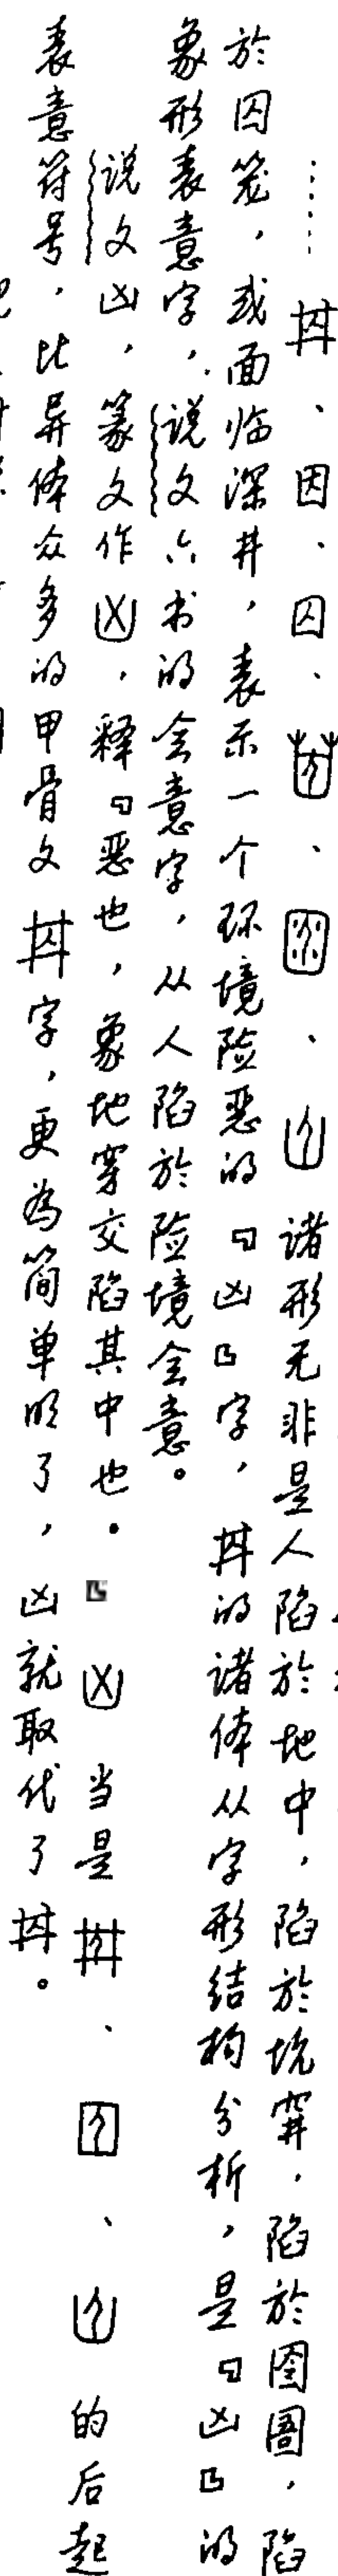 ……、因、囚、、、诸形无非是人陷於地中，陷於坑穽，陷於囹圄，陷
於囚笼，或面临深井，表示一个环境险恶的「凶」字，的诸体从字形结构分析，是「凶」的
象形表意字，说文六书的会意字，从人陷於险境会意。
说文凶，篆文作凶，释「恶也，象地穿交陷其中也。」凶当是、囚、的后起
表意符号，比异体众多的甲骨文字，更为简单明了，凶就取代了。